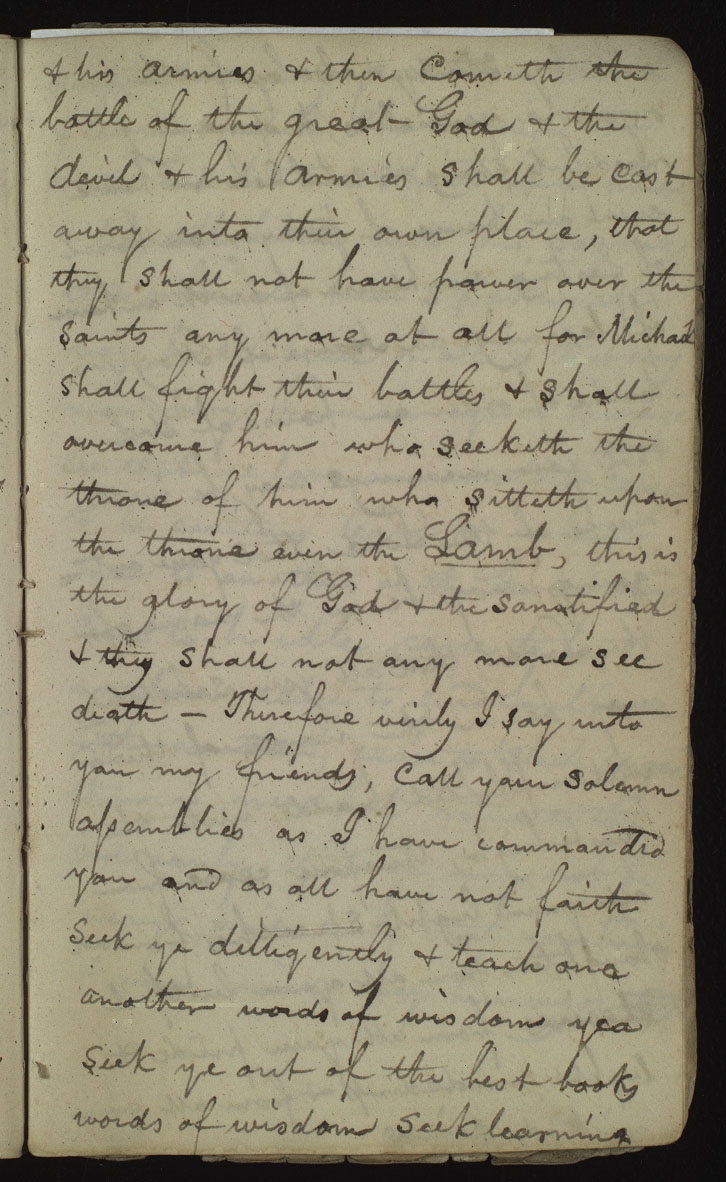 & his armies & then Cometh the
battle of the great God & the
devil & his armies shall be cast
away into their own place, that
they shall not have power over the
saints any more at all for Michael
shall fight their battles & shall
overcome him who seeketh the
throne of him who sitteth upon
the throne even the Lamb, this is
the glory of God & the sanctified
& they shall not any more see
death – Therefore verily I say unto
you my friends, call your solemn
assemblies as I have commanded
you and as all have not faith
seek ye dilligently & teach one
another words of wisdom yea
seek ye out of the best books
words of wisdom seek learning